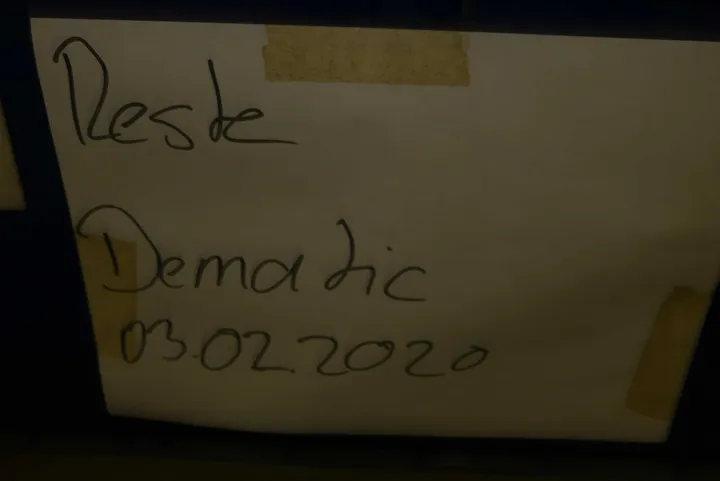 Reste
Dematic
03.02.2020